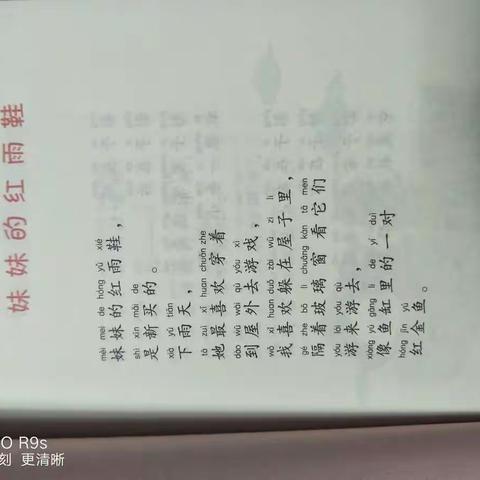 妹妹的红雨鞋
mèi mei de hóng yǔ xié
妹妹的红雨鞋，
shì xīn mǎi de
是新买的。
xià yǔ tiān
下雨天，
tā zuì xǐ huan chuān zhe
她最喜欢穿着
dào wū wài qù yóu xì
到屋外去游戏，
wǒ xǐ huan duǒ zài wū zi lǐ
我喜欢躲在屋子里，
gé zhe bō li chuāng kàn tā men
隔着玻璃窗看它们
yóu lái yóu qù
游来游去，
xiàng yú gāng lǐ de yí duì
像鱼缸里的一对
hóng jīn yú
红金鱼。
O R9s
刻 更清晰